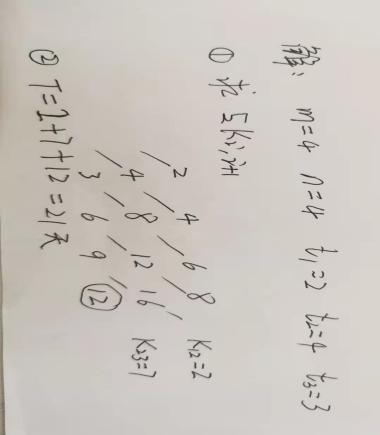 解: m=4 n=4 t₁=2 t₂=4 t₃=3
① 求 ΣKi,i+1
2 4 6 8 K12=2
4 8 12 16 K23=7
3 6 9 12
② T=2+7+12=21天